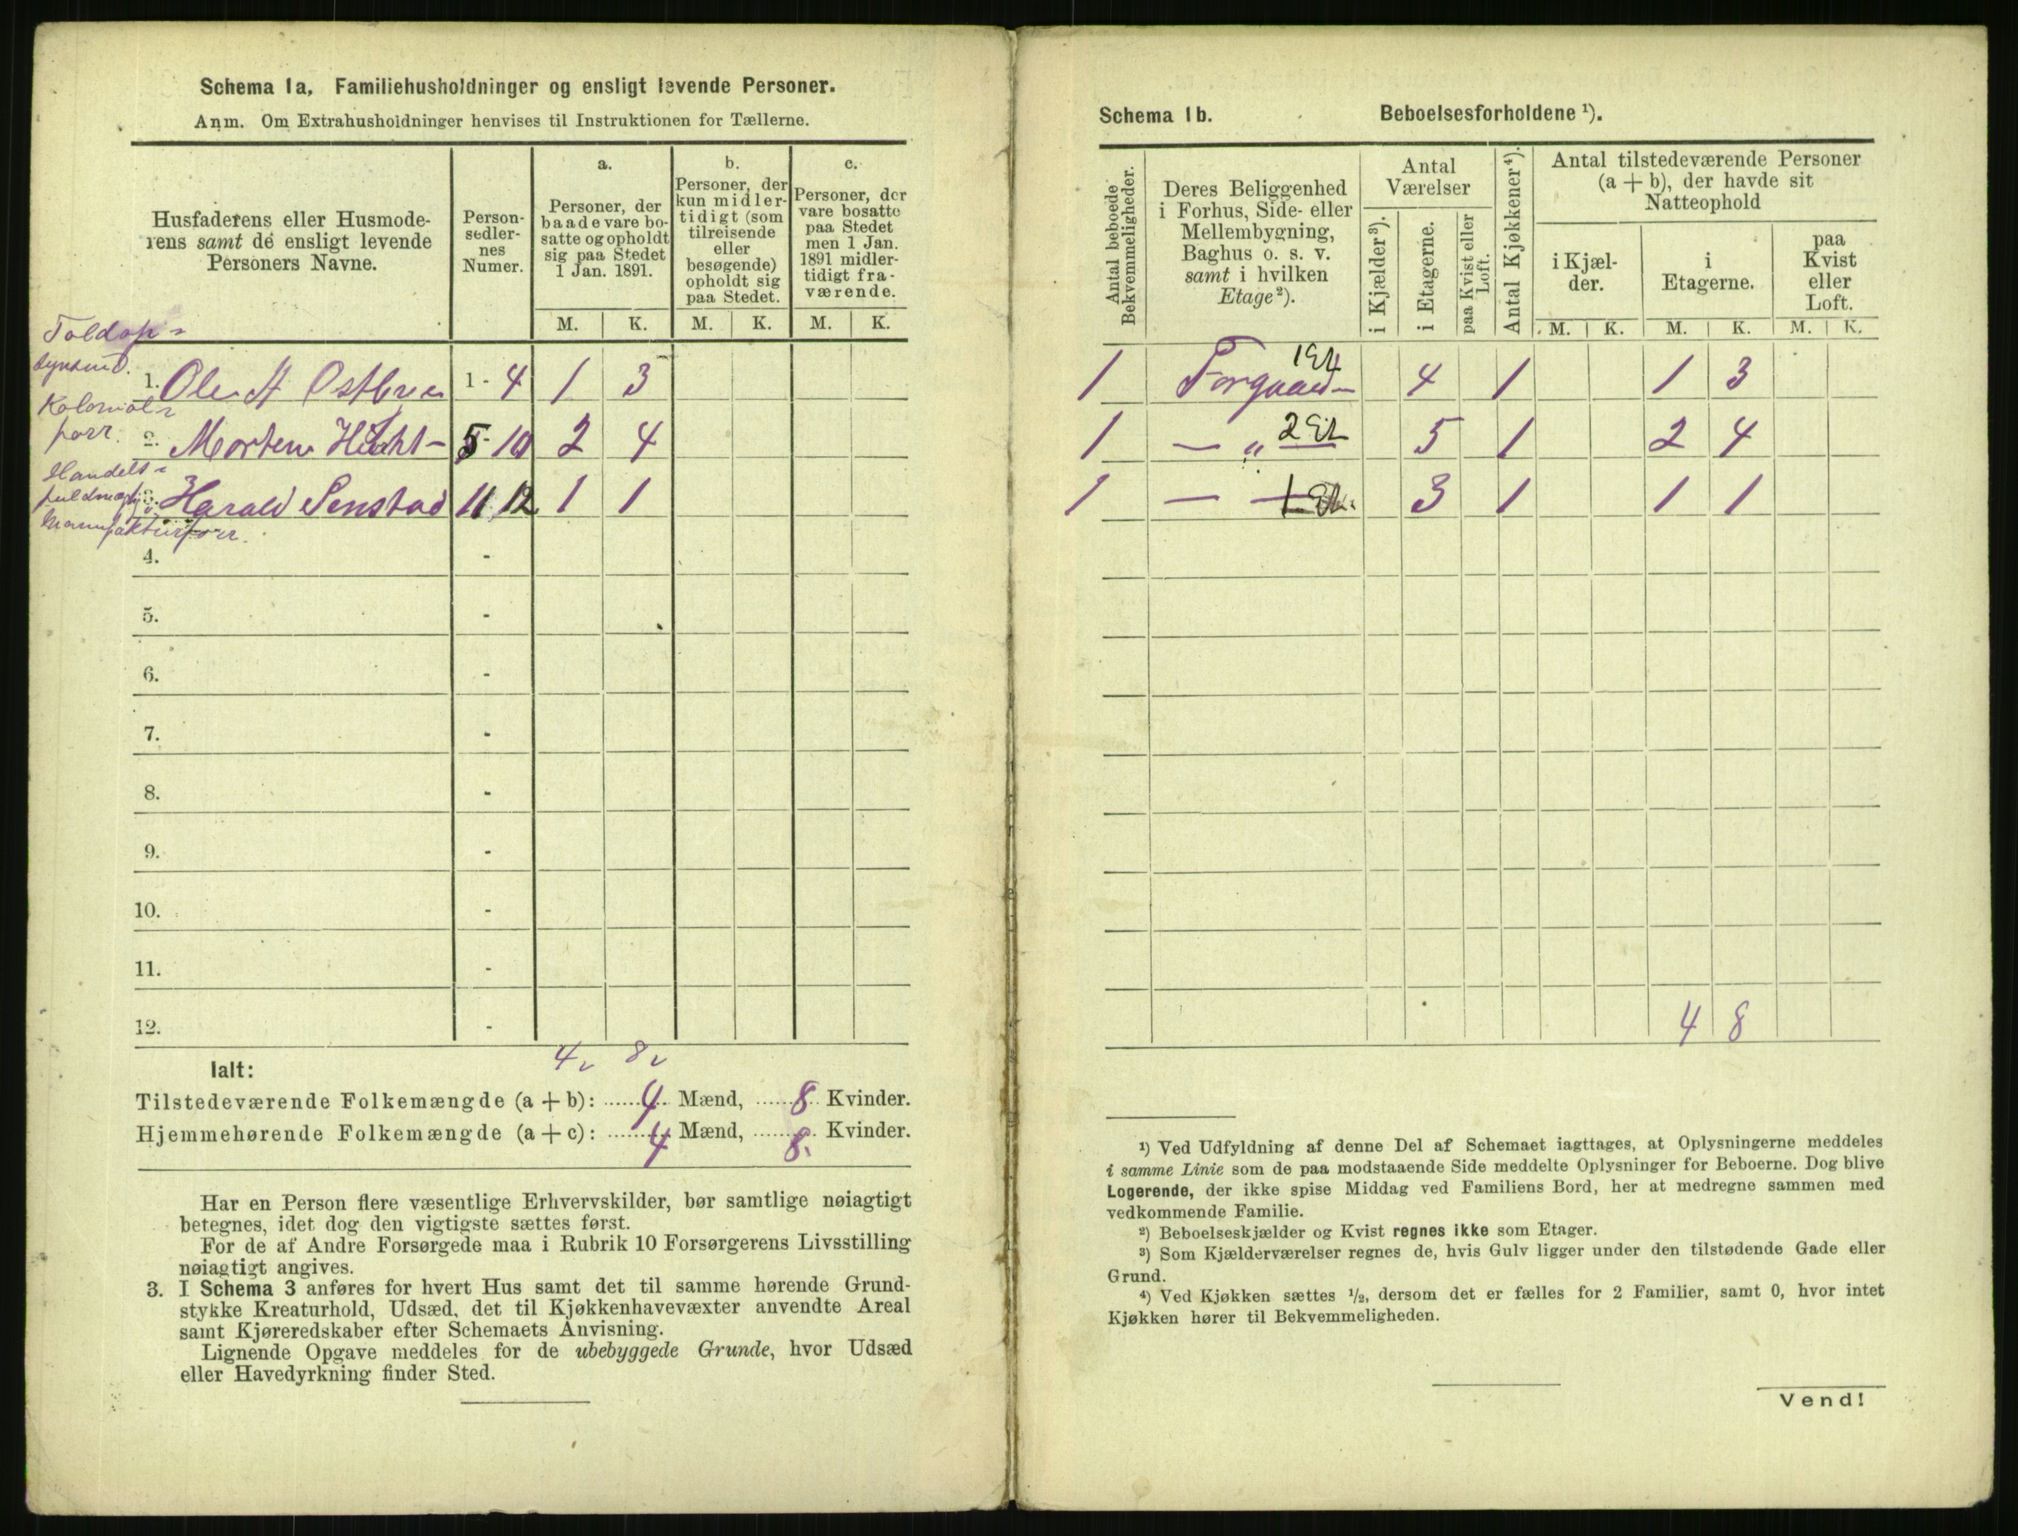 Schema 1a. Familiehusholdninger og ensligt levende Personer.
Anm. Om Extrahusholdninger henvises til Instruktionen for Tællerne.
Husfaderens eller Husmode-
rens samt de ensligt levende
Personers Navne.
Person-
sedler-
nes
Numer.
a.
Personer, der
baade vare bo-
satte og opholdt
sig paa Stedet
1 Jan. 1891.
b.
Personer, der
kun midler-
tidigt (som
tilreisende
eller
besøgende)
opholdt sig
paa Stedet.
c.
Personer, der
vare bosatte
paa Stedet
men 1 Jan.
1891 midler-
tidigt fra-
værende.
M. K. M. K. M. K.
Toldop-
synsmd.
1. Ole A 1 - 4 1 3
Kolonial-
forr.
2. Morten 5 - 10 2 4
Handels-
fuldmægtig
3. Harald Senstad 11 12 1 1
Manufakturforr.
4. -
5. -
6. -
7. -
8. -
9. -
10. -
11. -
12. -
4 8
Ialt:
Tilstedeværende Folkemængde (a + b): 4 Mænd, 8 Kvinder.
Hjemmehørende Folkemængde (a + c): 4 Mænd, 8. Kvinder.
Har en Person flere væsentlige Erhvervskilder, bør samtlige nøiagtigt
betegnes, idet dog den vigtigste sættes først.
For de af Andre Forsørgede maa i Rubrik 10 Forsørgerens Livsstilling
nøiagtigt angives.
3. I Schema 3 anføres for hvert Hus samt det til samme hørende Grund-
stykke Kreaturhold, Udsæd, det til Kjøkkenhavevæxter anvendte Areal
samt Kjøreredskaber efter Schemaets Anvisning.
Lignende Opgave meddeles for de ubebyggede Grunde, hvor Udsæd
eller Havedyrkning finder Sted.
Schema 1b. Beboelsesforholdene ¹).
Antal beboede
Bekvemmeligheder.
Deres Beliggenhed
i Forhus, Side- eller
Mellembygning,
Baghus o. s. v.
samt i hvilken
Etage²).
Antal
Værelser
i Kjælder³).
i Etagerne.
paa Kvist eller
Loft.
Antal Kjøkkener⁴).
Antal tilstedeværende Personer
(a + b), der havde sit
Natteophold
i Kjæl-
der.
i
Etagerne.
paa
Kvist
eller
Loft.
M. K. M. K. M. K.
1 Forgaard 1 Et 4 1 1 3
1 — „ 2 Et 5 1 2 4
1 — — 1 Et. 3 1 1 1
4 8
¹) Ved Udfyldning af denne Del af Schemaet iagttages, at Oplysningerne meddeles
i samme Linie som de paa modstaaende Side meddelte Oplysninger for Beboerne. Dog blive
Logerende, der ikke spise Middag ved Familiens Bord, her at medregne sammen med
vedkommende Familie.
²) Beboelseskjælder og Kvist regnes ikke som Etager.
³) Som Kjælderværelser regnes de, hvis Gulv ligger under den tilstødende Gade eller
Grund.
⁴) Ved Kjøkken sættes ½, dersom det er fælles for 2 Familier, samt 0, hvor intet
Kjøkken hører til Bekvemmeligheden.
Vend!